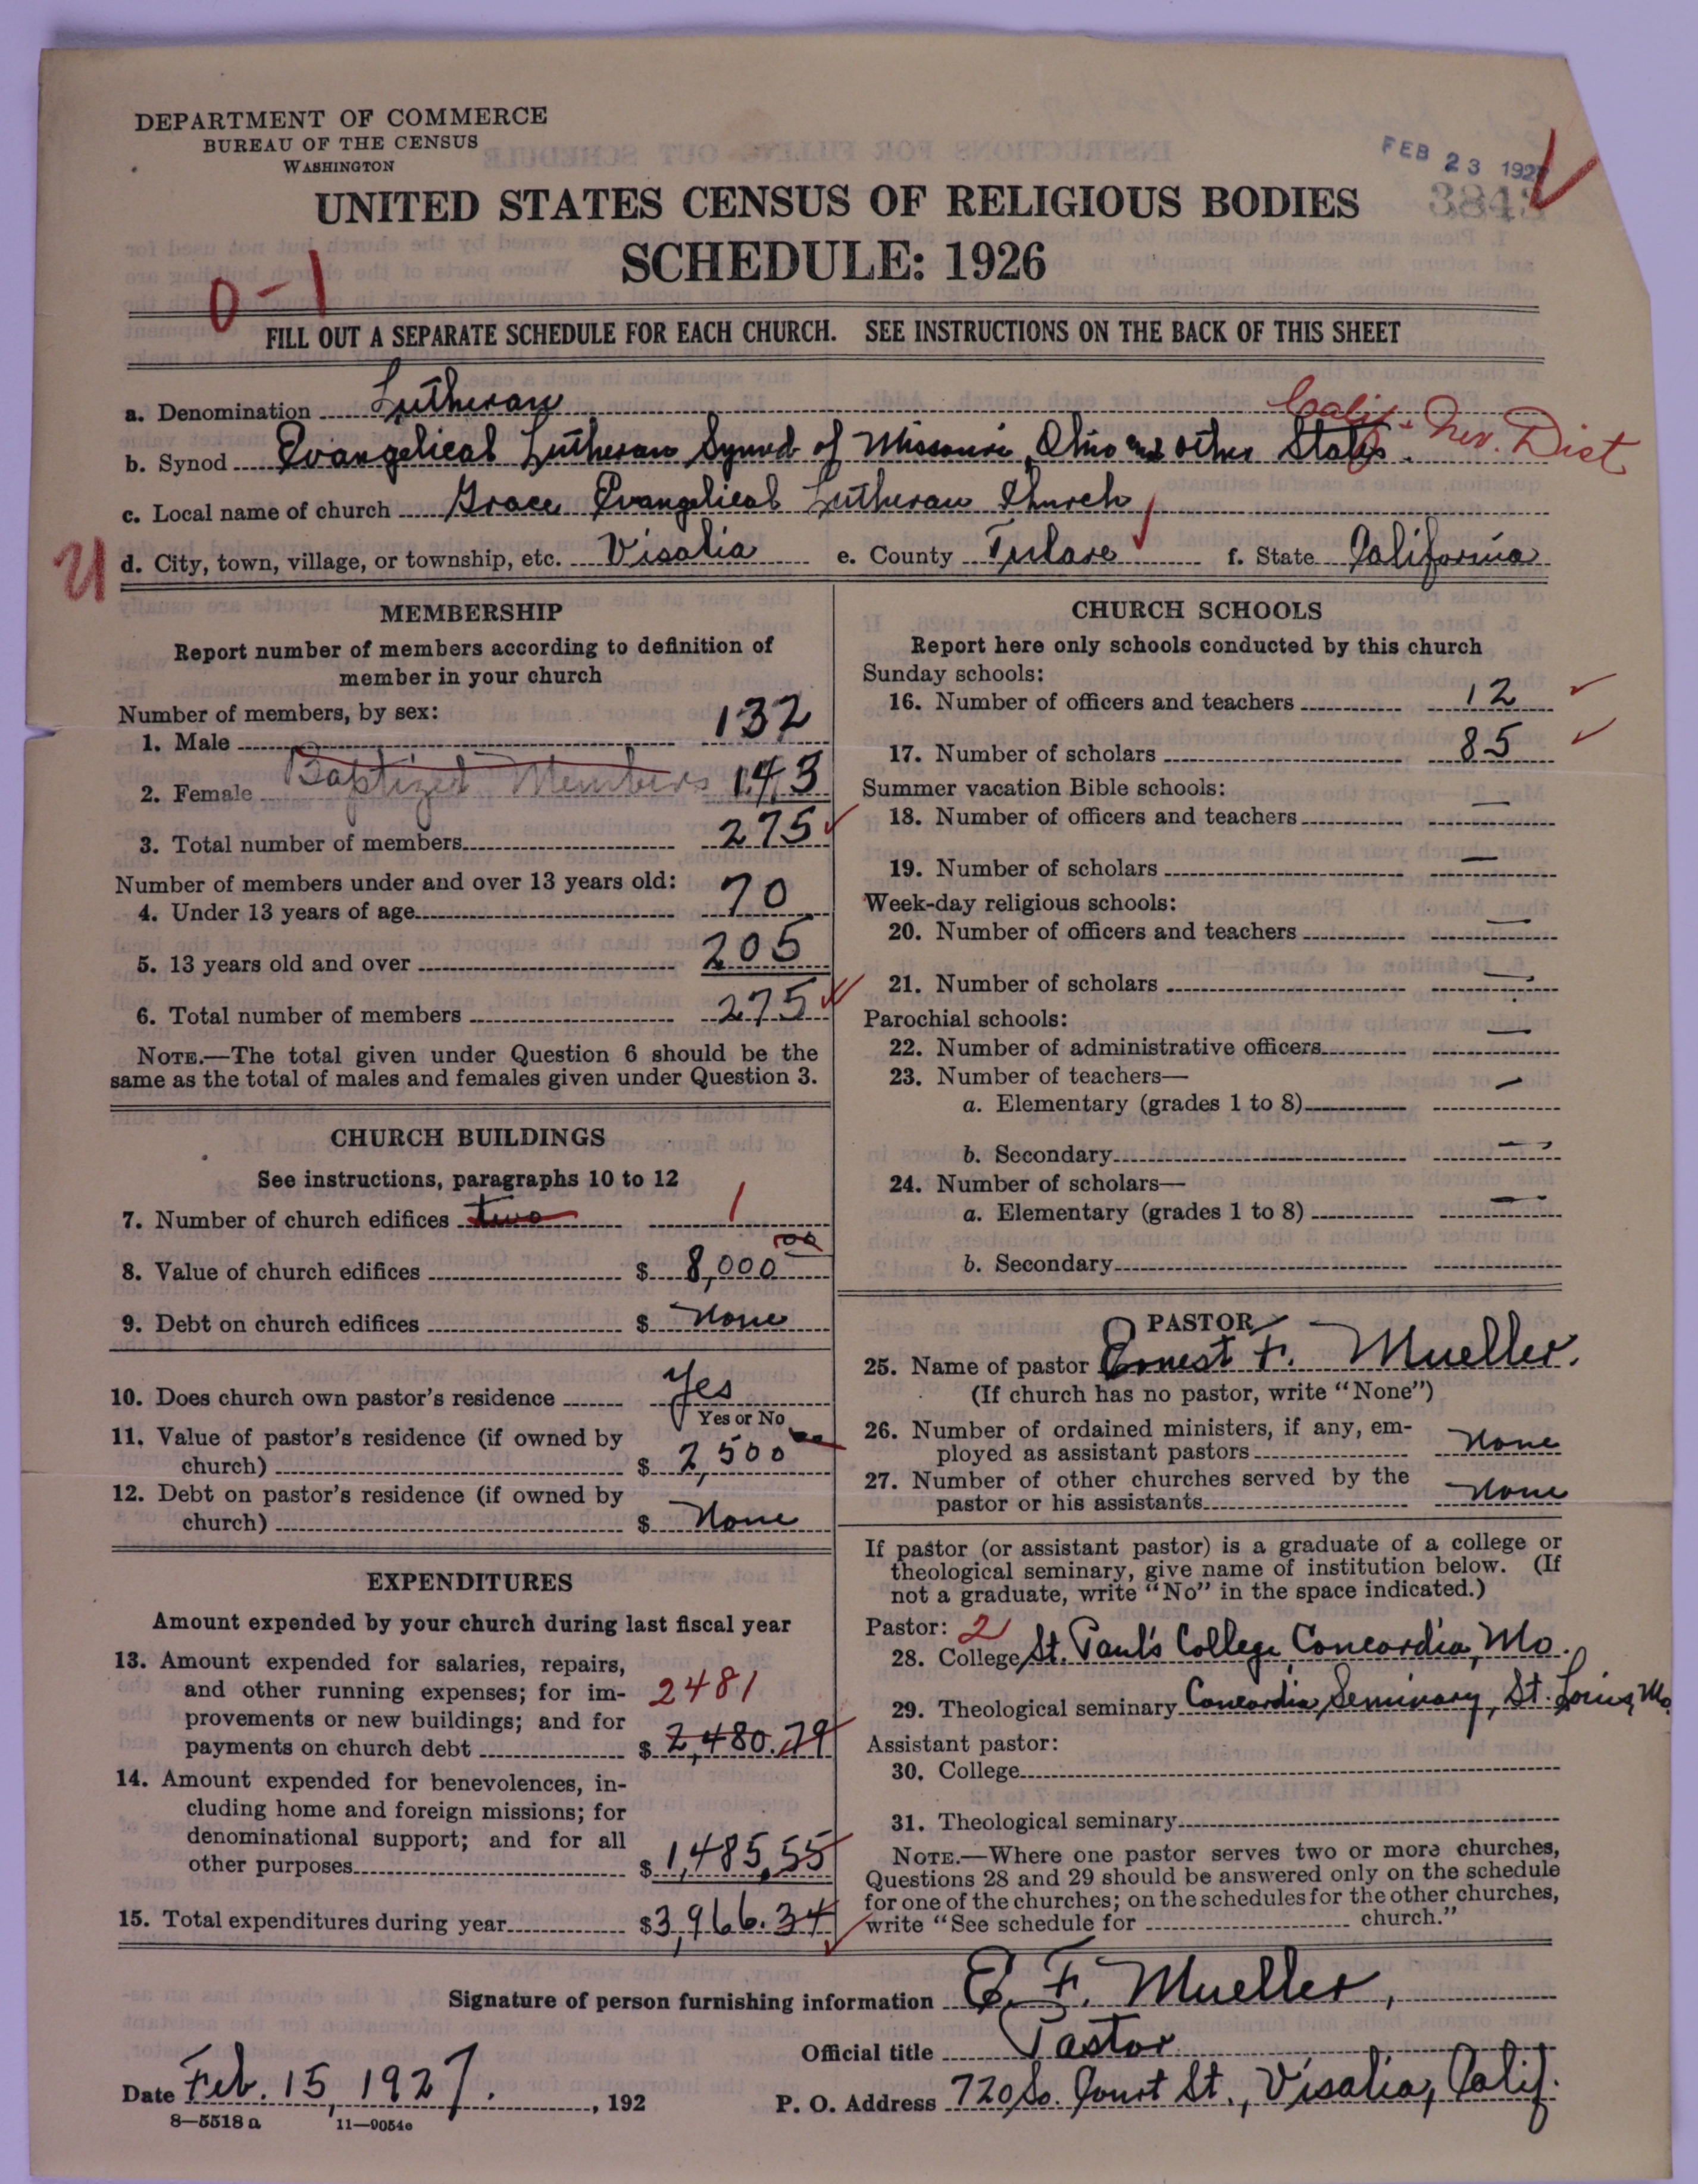 DEPARTMENT OF COMMERCE
BUREAU OF THE CENSUS
WASHINGTON
FEB 23 1927
3843
UNITED STATES CENSUS OF RELIGIOUS BODIES
SCHEDULE: 1926
0-1
FILL OUT A SEPARATE SCHEDULE FOR EACH CHURCH. SEE INSTRUCTIONS ON THE BACK OF THIS SHEET
a. Denomination Lutheran
Calif-Nev. Dist
b. Synod Evangelical Lutheran Synod of Missouri, Ohio and other States.
c. Local name of church Grace Evangelical Lutheran Church
U d. City, town, village, or township, etc. Visalia e. County Tulare f. State California
MEMBERSHIP
Report number of members according to definition of
member in your church
Number of members, by sex:
1. Male 132
Baptized Members
2. Female 143
3. Total number of members 275
Number of members under and over 13 years old:
4. Under 13 years of age 70
5. 13 years old and over 205
6. Total number of members 275
NOTE.—The total given under Question 6 should be the
same as the total of males and females given under Question 3.
CHURCH BUILDINGS
See instructions, paragraphs 10 to 12
7. Number of church edifices two 1
8. Value of church edifices $ 8,000 00
9. Debt on church edifices $ None
10. Does church own pastor's residence Yes
Yes or No
11. Value of pastor's residence (if owned by
church) $ 2,500
12. Debt on pastor's residence (if owned by
church) $ None
EXPENDITURES
Amount expended by your church during last fiscal year
13. Amount expended for salaries, repairs,
and other running expenses; for im- 2481
provements or new buildings; and for
payments on church debt $ 2,480.79
14. Amount expended for benevolences, in-
cluding home and foreign missions; for
denominational support; and for all
other purposes $ 1,485.55
15. Total expenditures during year $3,966.34
CHURCH SCHOOLS
Report here only schools conducted by this church
Sunday schools:
16. Number of officers and teachers 12
17. Number of scholars 85
Summer vacation Bible schools:
18. Number of officers and teachers —
19. Number of scholars —
Week-day religious schools:
20. Number of officers and teachers —
21. Number of scholars —
Parochial schools:
22. Number of administrative officers —
23. Number of teachers—
a. Elementary (grades 1 to 8) —
b. Secondary —
24. Number of scholars—
a. Elementary (grades 1 to 8) —
b. Secondary
PASTOR
25. Name of pastor Ernest F. Mueller.
(If church has no pastor, write "None")
26. Number of ordained ministers, if any, em-
ployed as assistant pastors None
27. Number of other churches served by the
pastor or his assistants None
If pastor (or assistant pastor) is a graduate of a college or
theological seminary, give name of institution below. (If
not a graduate, write "No" in the space indicated.)
Pastor: 2
28. College St. Paul's College, Concordia, Mo.
29. Theological seminary Concordia Seminary, St. Louis, Mo.
Assistant pastor:
30. College
31. Theological seminary
NOTE.—Where one pastor serves two or more churches,
Questions 28 and 29 should be answered only on the schedule
for one of the churches; on the schedules for the other churches,
write "See schedule for church."
Signature of person furnishing information E. F. Mueller,
Official title Pastor
Date Feb. 15, 1927. , 192
P. O. Address 720 So. Court St., Visalia, Calif.
8—5518 a 11—9054e